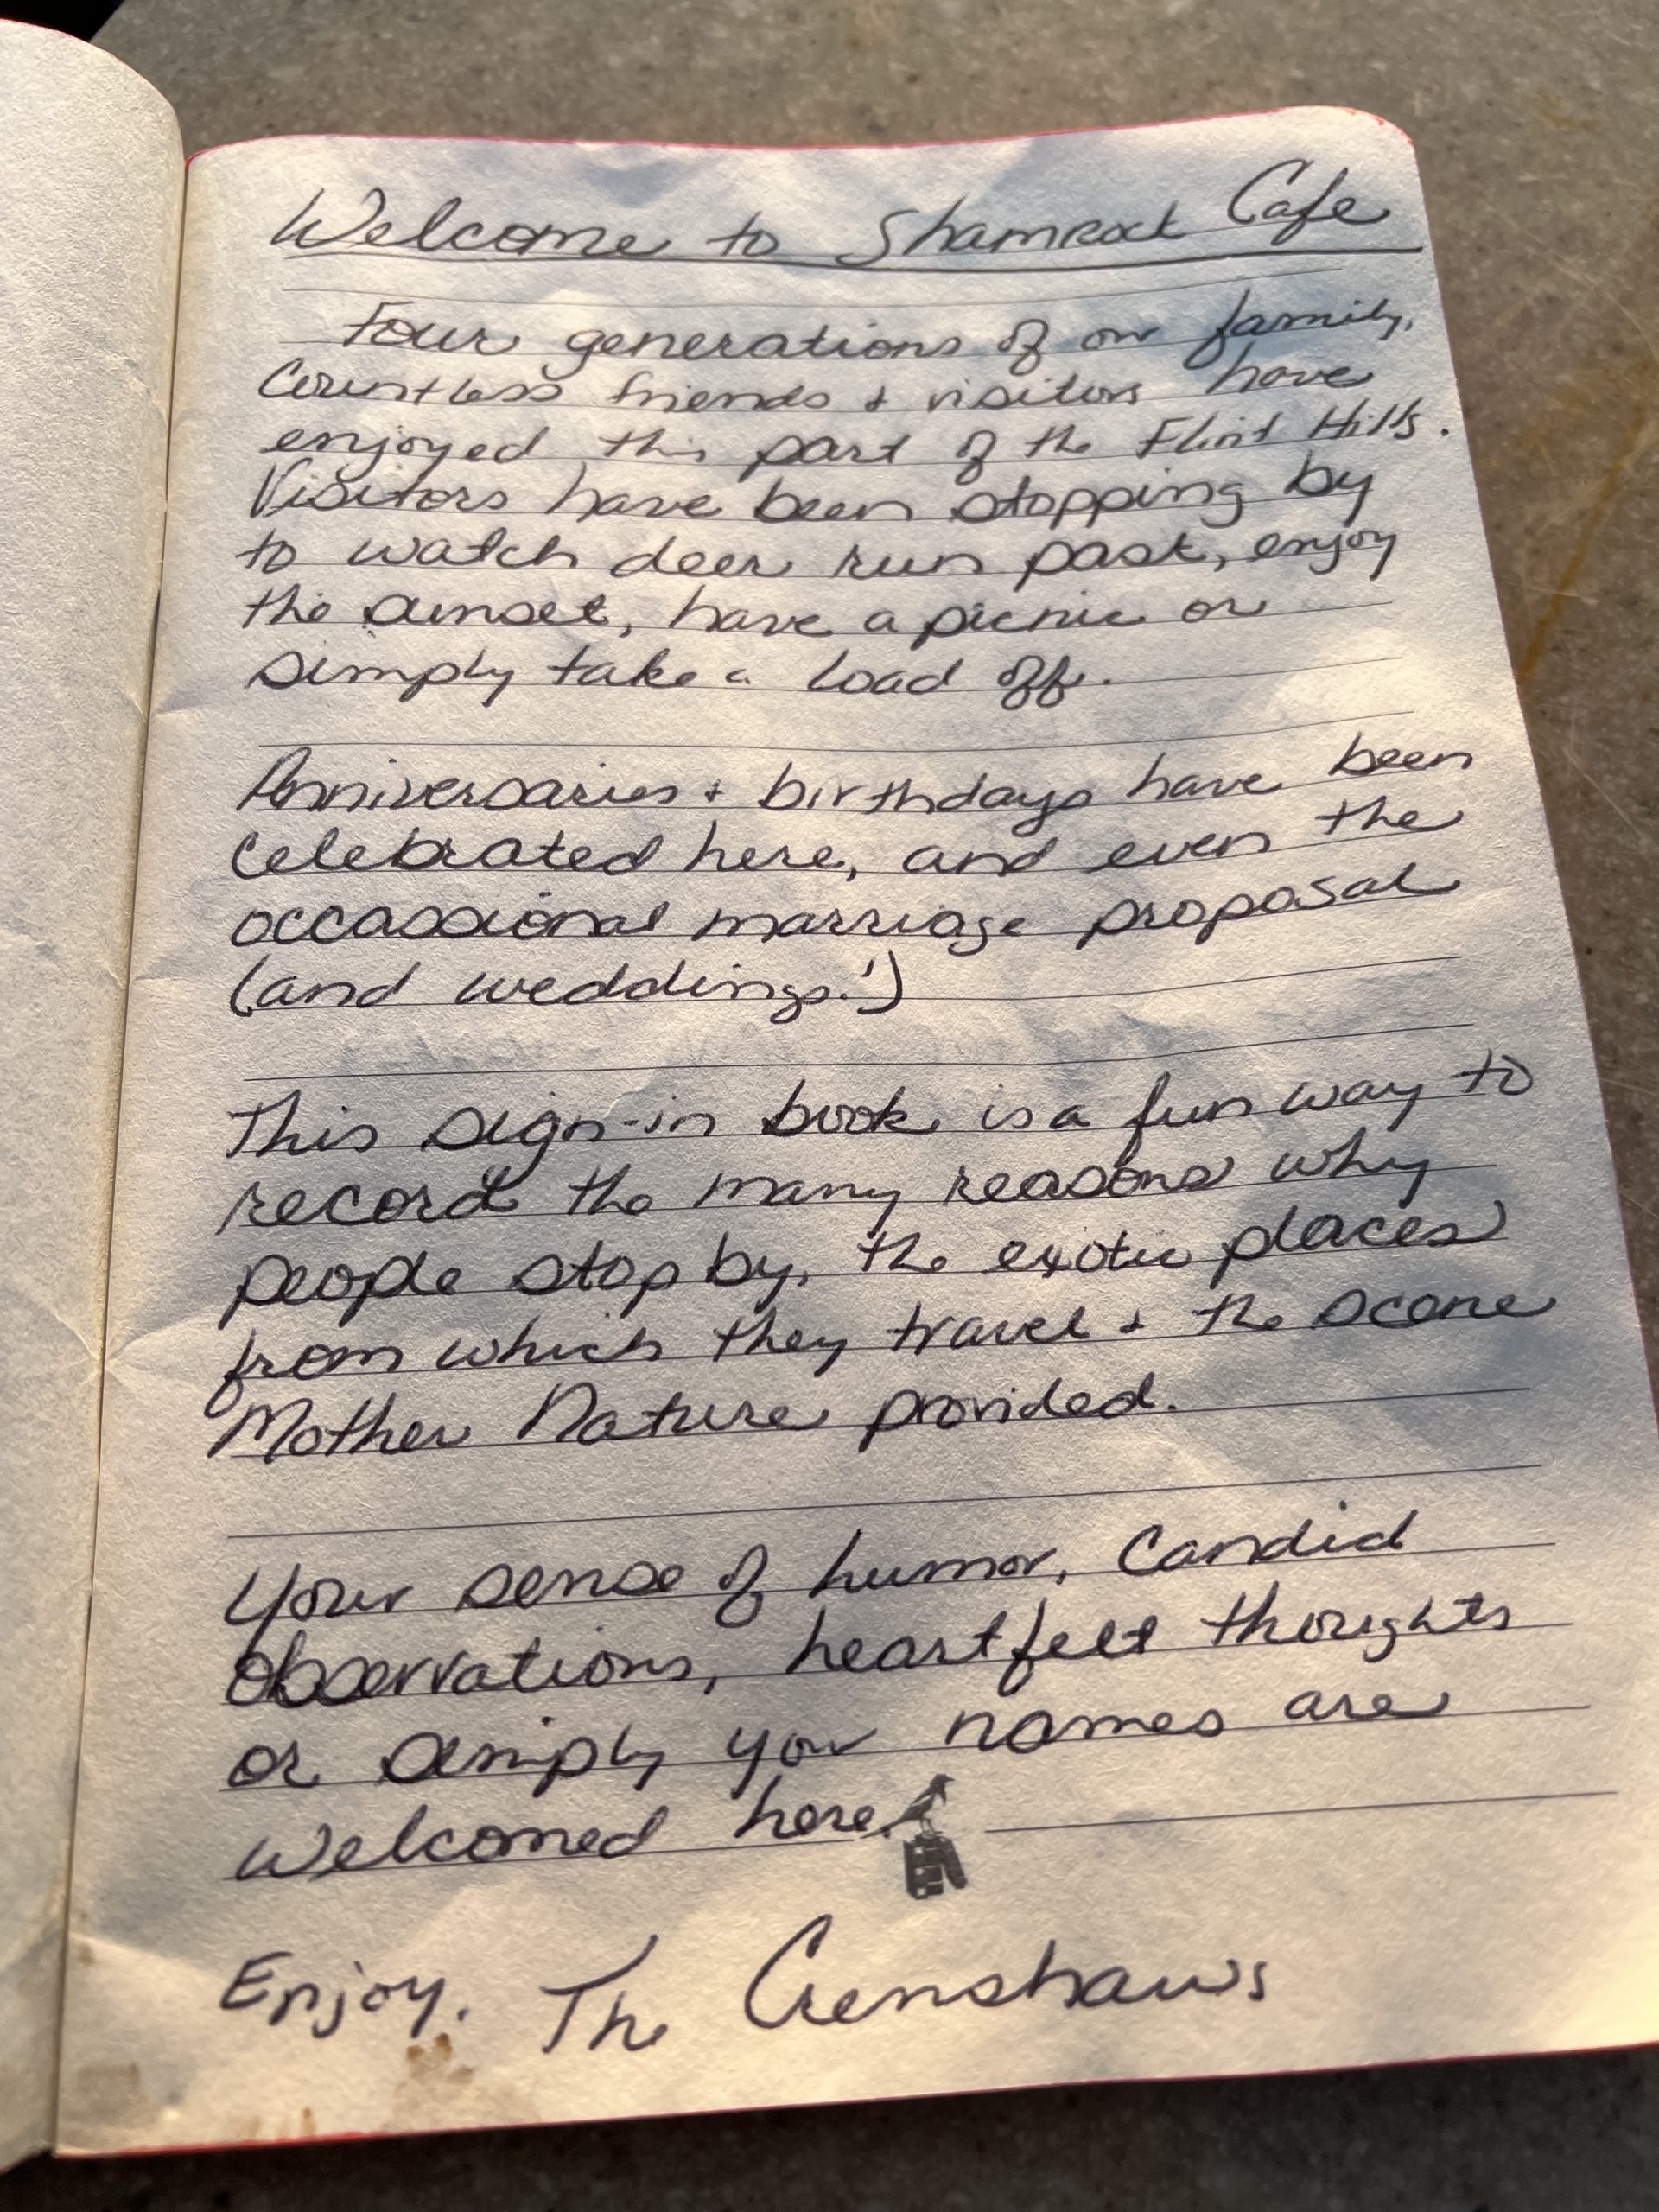 Welcome to Shamrock Cafe
Four generations of our family,
Countless friends + visitors have
enjoyed this part of the Flint Hills.
Visitors have been stopping by
to watch deer run past, enjoy
the sunset, have a picnic or
simply take a load off.
Anniversaries + birthdays have been
celebrated here, and even the
occassional marriage proposal
(and weddings!)
This sign-in book is a fun way to
record the many reasons why
people stop by, the exotic places
from which they travel + the scene
Mother Nature provided.
Your sense of humor, candid
observations, heartfelt thoughts
or simply your names are
welcomed here.
Enjoy. The Crenshaws